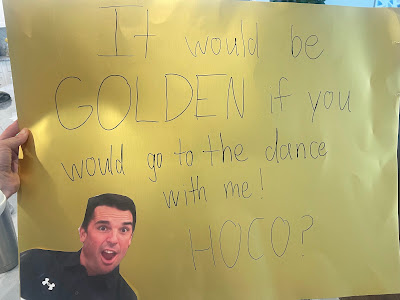 It would be
GOLDEN if you
would go to the dance
with me!
HOCO?